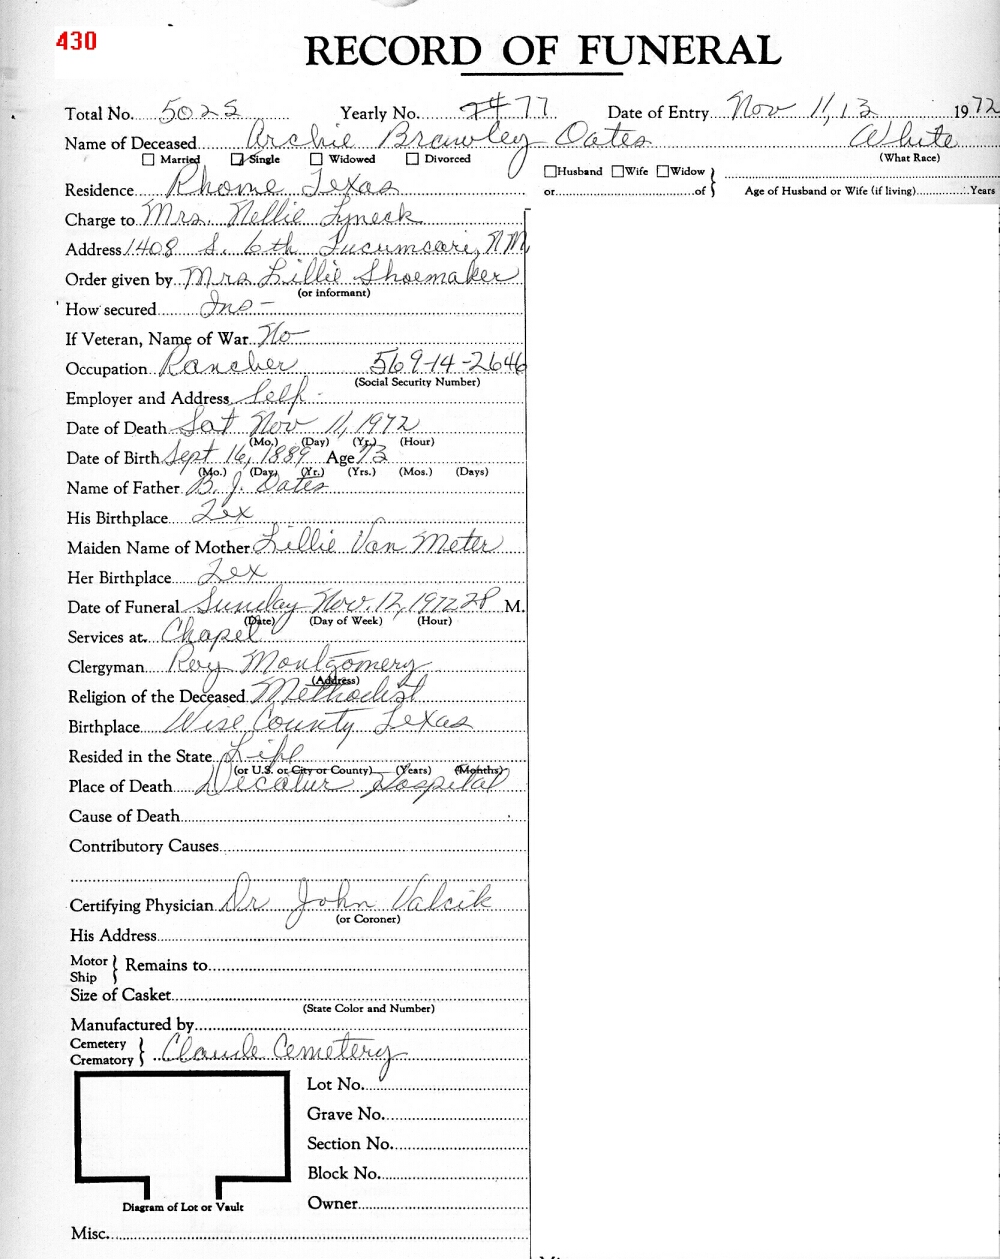 430
RECORD OF FUNERAL
Total No. 5025 Yearly No. 77 Date of Entry Nov 11, 13 1972
Name of Deceased Archie Brawley Oates White
(What Race)
Married Single Widowed Divorced Husband Wife Widow
Residence Rhome Texas or of Age of Husband or Wife (if living) Years
Charge to Mrs. Nellie
Address 1408 S. 6th Tucumcari, NM
Order given by Mrs Lillie Shoemaker
(or informant)
How secured Ins -
If Veteran, Name of War No
Occupation Rancher 569-14-2646
(Social Security Number)
Employer and Address Self -
Date of Death Sat Nov 11, 1972
(Mo.) (Day) (Yr.) (Hour)
Date of Birth Sept 16, 1889 Age 73
(Mo.) (Day) (Yr.) (Yrs.) (Mos.) (Days)
Name of Father B. J. Oates
His Birthplace Tex
Maiden Name of Mother Lillie Van Meter
Her Birthplace Tex
Date of Funeral Sunday Nov. 12, 1972 2P M.
(Date) (Day of Week) (Hour)
Services at Chapel
Clergyman Roy Montgomery
(Address)
Religion of the Deceased Methodist
Birthplace Wise County, Texas
Resided in the State Life
(or U.S. or City or County) (Years) (Months)
Place of Death Decatur Hospital
Cause of Death
Contributory Causes
Certifying Physician Dr John Valcik
(or Coroner)
His Address
Motor Ship } Remains to
Size of Casket
(State Color and Number)
Manufactured by
Cemetery Crematory } Claude Cemetery
Lot No.
Grave No.
Section No.
Block No.
Owner
Diagram of Lot or Vault
Misc.